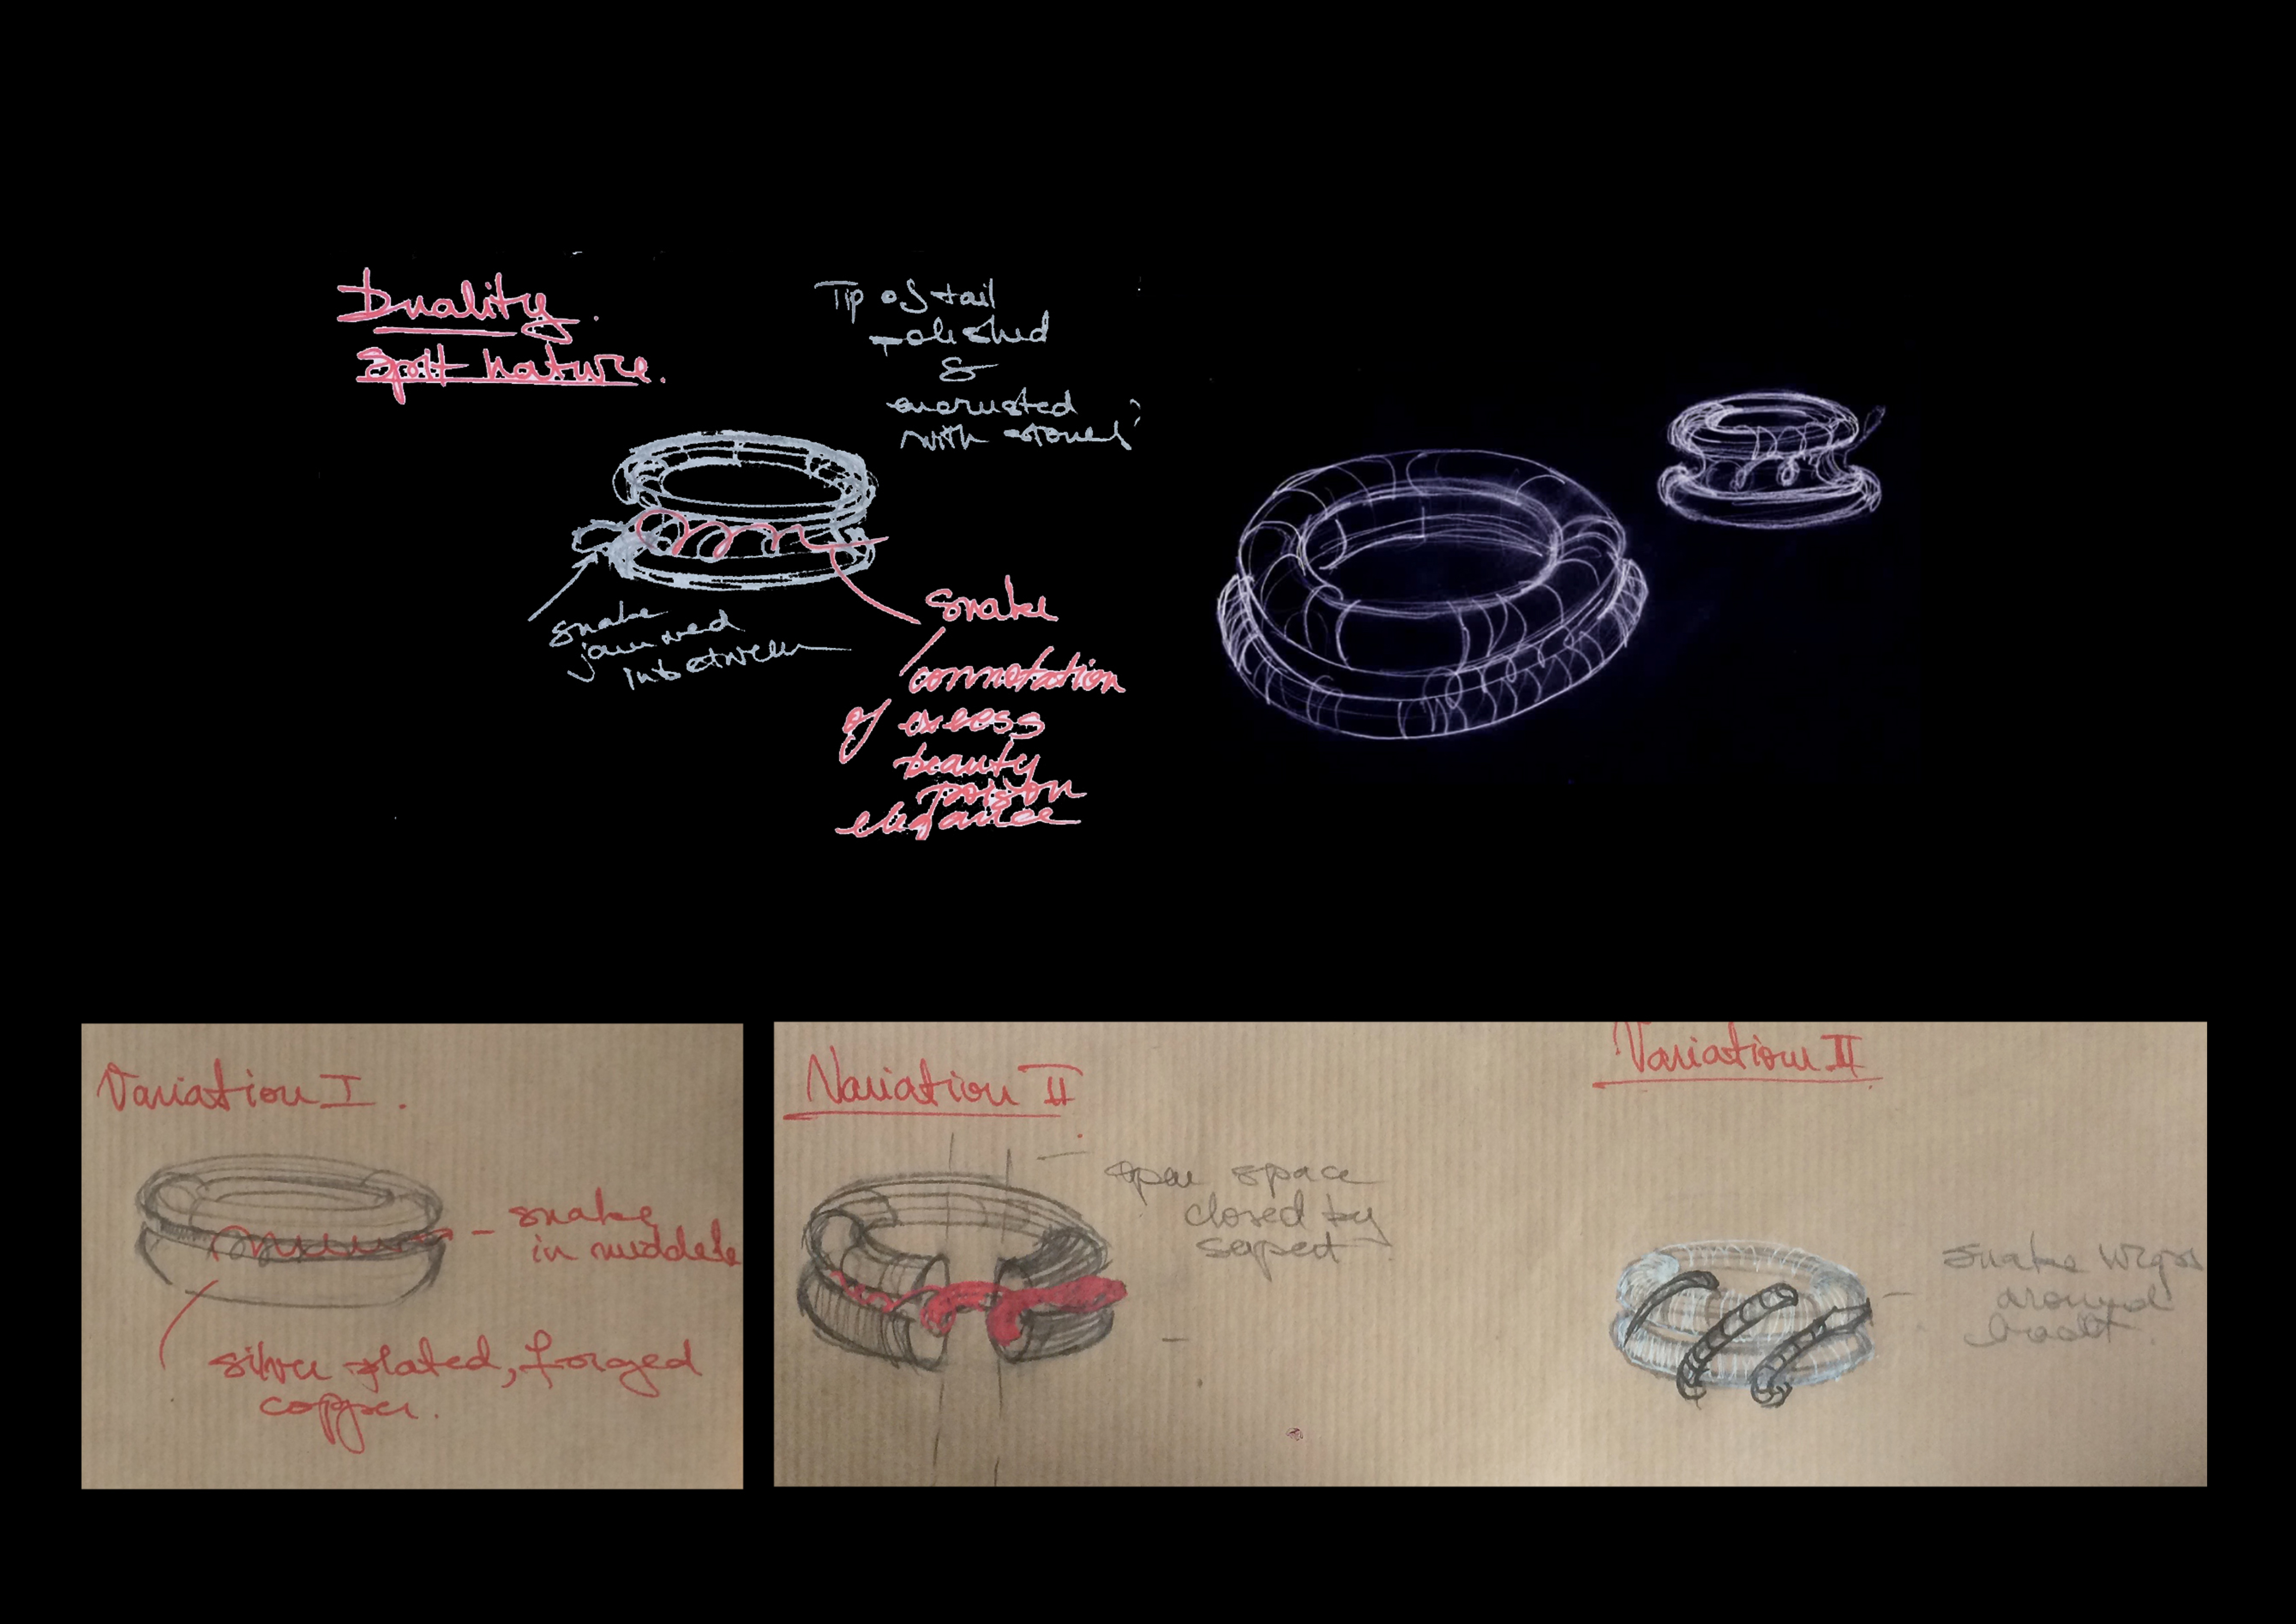 Duality.
Split nature.
Tip of tail
polished
&
encrusted
with stones?
snake
jammed
inbetween
snake
connotation
of excess
beauty
poison
elegance
Variation I.
snake
in middle
silver plated, forged
copper.
Variation II
open space
closed by
Variation III
snake
around